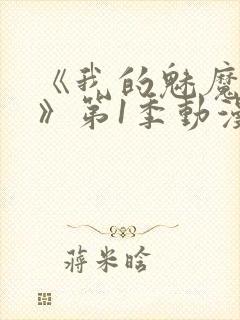 《我的魅魔
》第1季動漫
蔣米晗